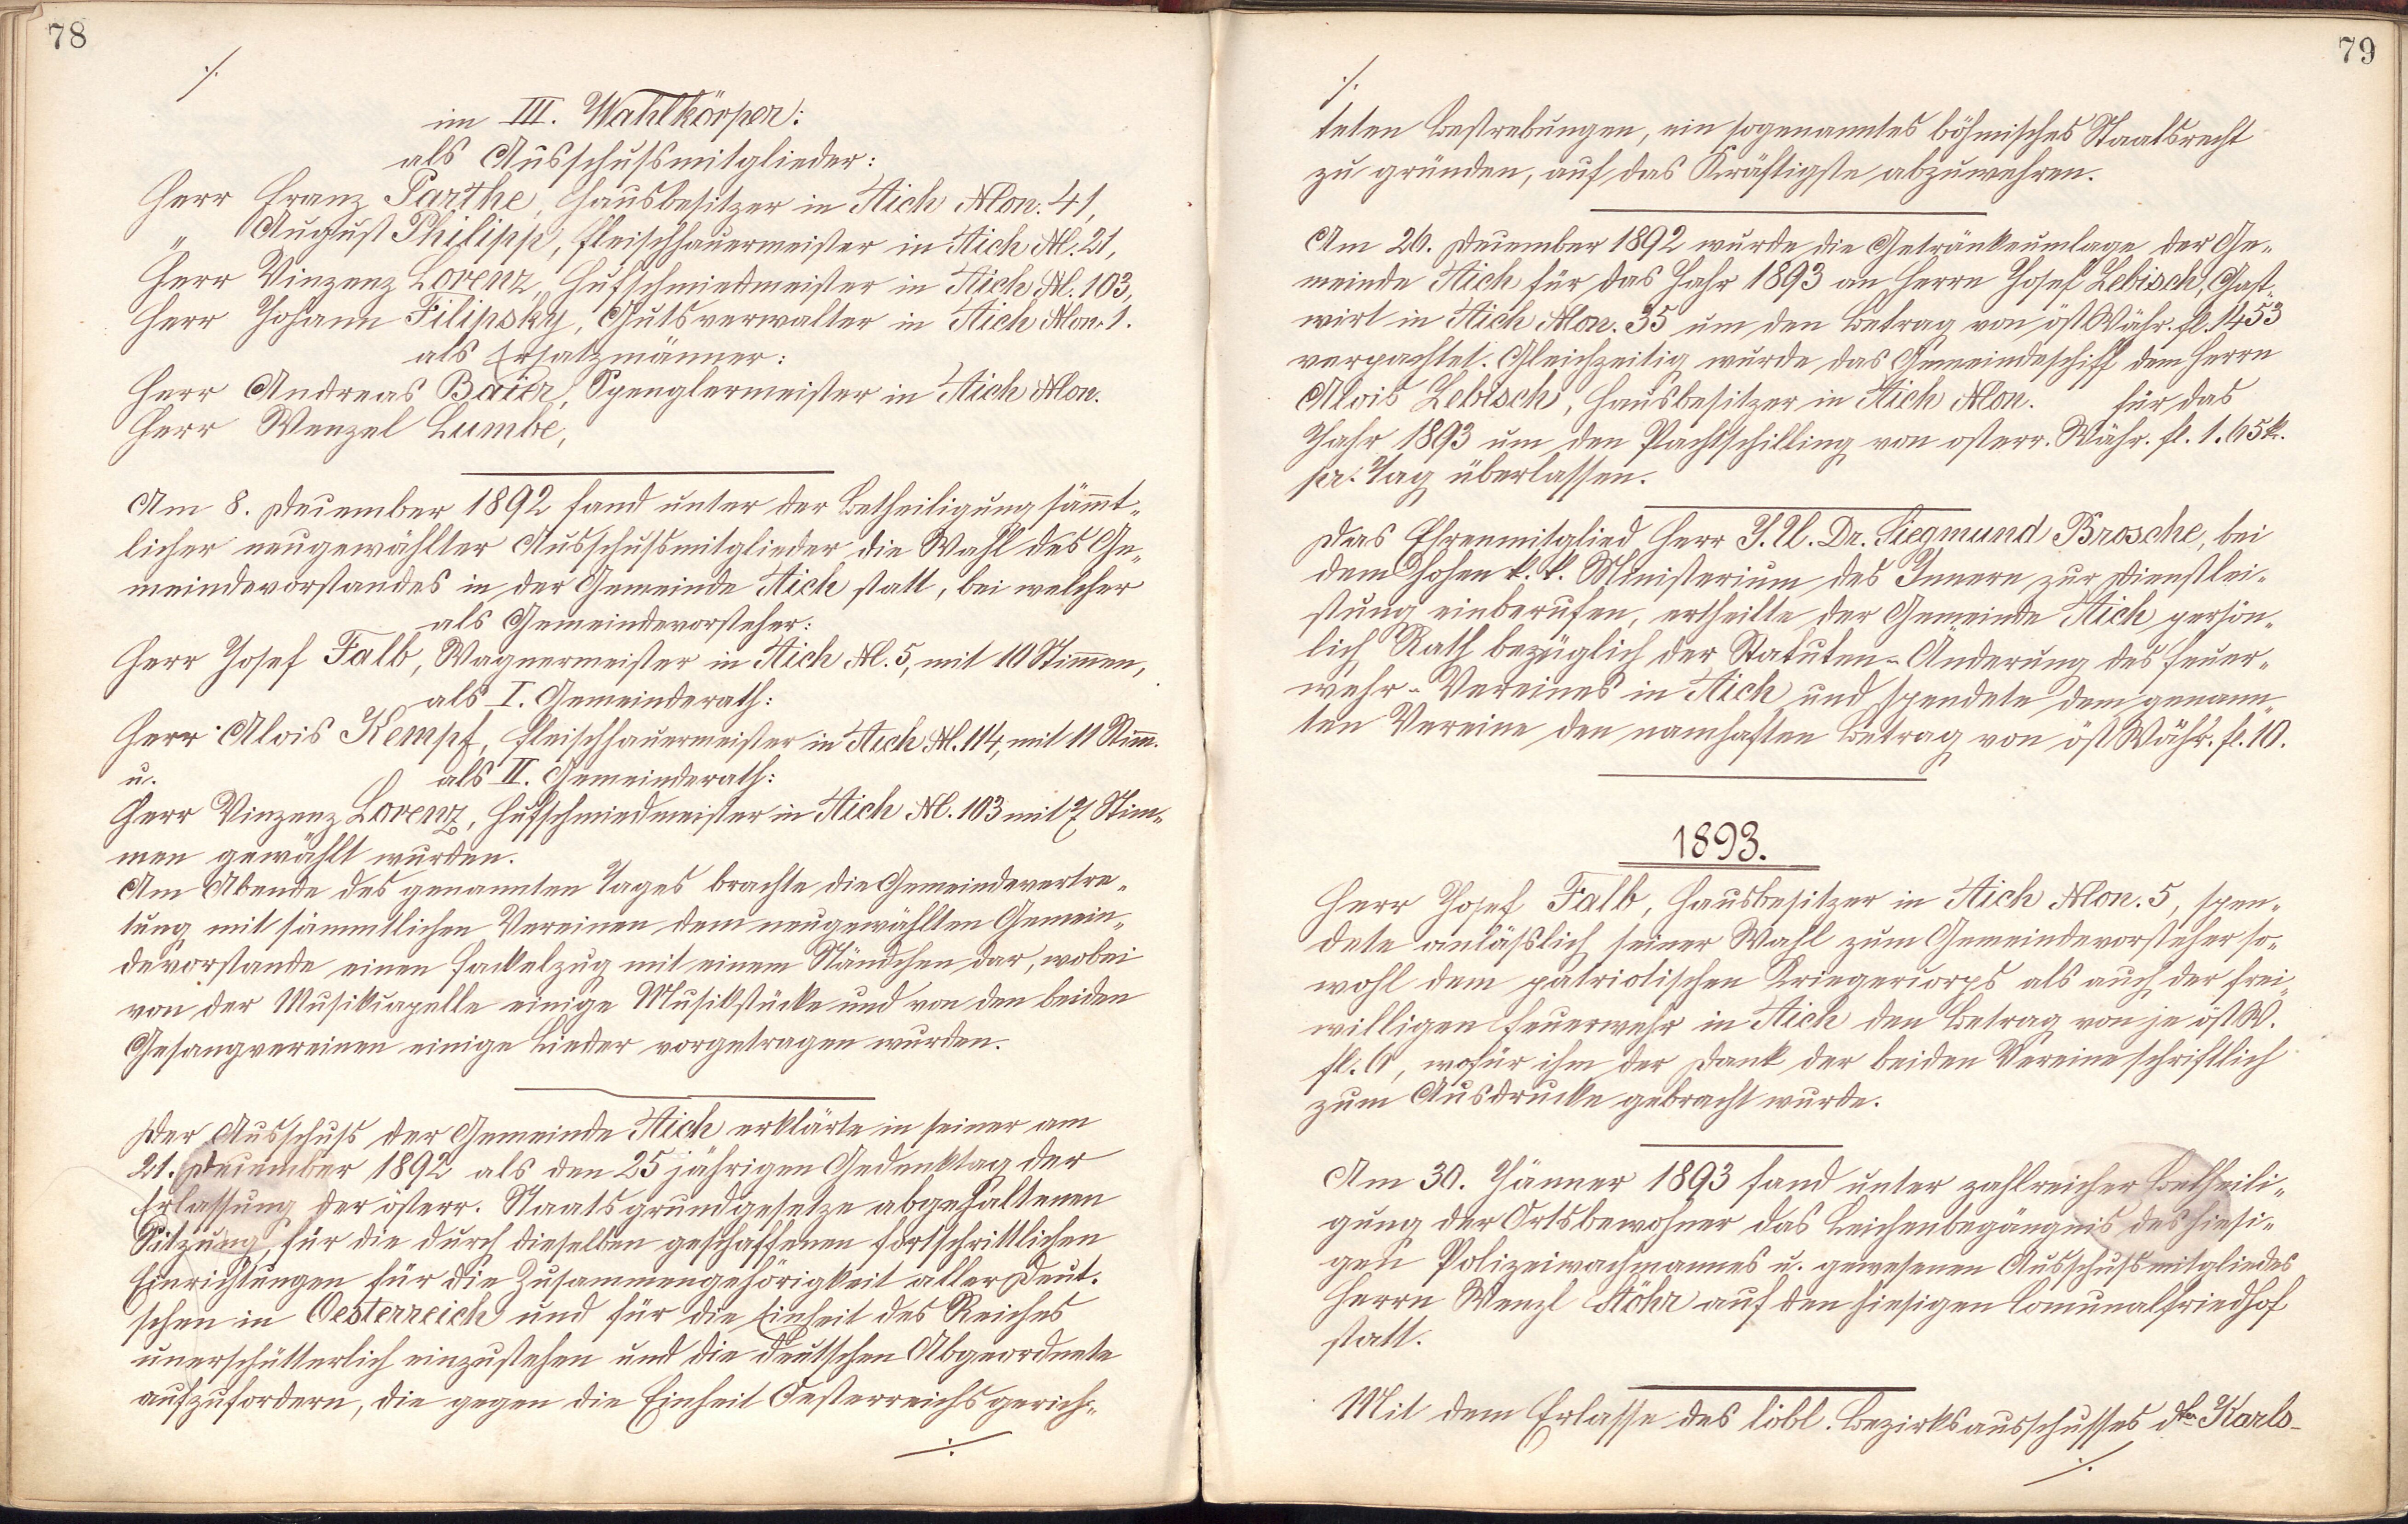 78
./.
im III. Wahlkörper:
als Ausschußmitglieder:
Herr Franz Parthe, Hausbesitzer in Aich Nron. 41,
„ August Philipp, Fleischhauermeister in Aich N. 21,
Herr Vinzenz Lorenz, Hufschmiedmeister in Aich N. 103,
Herr Johann Filipsky, Gutsverwalter in Aich Nron. 1.
als Ersatzmänner:
Herr Andreas Baier, Spenglermeister in Aich Nron.
Herr Wenzel Lumbe,
Am 8. Dezember 1892 fand unter der Betheiligung sämt-
licher neugewählter Ausschußmitglieder die Wahl des Ge-
meindevorstandes in der Gemeinde Aich statt, bei welcher
als Gemeindevorsteher:
Herr Josef Falb, Wagnermeister in Aich N. 5, mit 10 Stimmen,
als I. Gemeinderath:
Herr Alois Kempf, Fleischhauermeister in Aich N. 114, mit 11 Stimm.
u. als II. Gemeinderath:
Herr Vinzenz Lorenz, Hufschmiedmeister in Aich N. 103 mit 7 Stim-
men gewählt wurden.
Am Abende des genannten Tages brachte die Gemeindevertre-
tung mit sämmtlichen Vereinen dem neugewählten Gemein-
devorstande einen Fackelzug mit einem Ständchen dar, wobei
von der Musikcapelle einige Musikstücke und von den beiden
Gesangvereinen einige Lieder vorgetragen wurden.
Der Ausschuß der Gemeinde Aich erklärte in seiner am
21. Dezember 1892 als den 25 jährigen Gedenktag der
Erlassung der österr. Staatsgrundgesetze abgehaltenen
Sitzung, für die durch dieselben geschaffenen fortschrittlichen
Einrichtungen für die Zusammengehörigkeit aller Deut-
schen in Oesterreich und für die Einheit des Reiches
unerschütterlich einzustehen und die deutschen Abgeordnete
aufzufordern, die gegen die Einheit Oesterreichs gerich-
./.
79
./.
teten Bestrebungen, ein sogenanntes böhmisches Staatsrecht
zu gründen, auf das Kräftigste abzuwehren.
Am 26. Dezember 1892 wurde die Getränkeumlage der Ge-
meinde Aich für das Jahr 1893 an Herrn Josef Lebisch, Gast-
wirt in Aich Nron. 35 um den Betrag von öst Währ. fl. 1453
verpachtet. Gleichzeitig wurde das Gemeindeschiff dem Herrn
Alois Lebisch, Hausbesitzer in Aich Nron. für das
Jahr 1893 um den Pachtschilling von österr. Währ. fl. 1.65 k.
pr. Tag überlassen.
Das Ehrenmitglied Herr J. U. Dr. Siegmund Brosche, bei
dem hohen k. k. Ministerium des Innern zur Dienstlei-
stung einberufen, ertheilte der Gemeinde Aich persön-
lich Rath bezüglich der Statuten-Änderung des Feuer-
wehr-Vereines in Aich und spendete dem genann-
ten Vereine den namhaften Betrag von öst Währ. fl. 10.
1893.
Herr Josef Falb, Hausbesitzer in Aich Nron. 5, spen-
dete anläßlich seiner Wahl zum Gemeindevorsteher so-
wohl dem patriotischen Kriegercorps als auch der frei-
willigen Feuerwehr in Aich den Betrag von je öst W.
fl. 6, wofür ihm der Dank der beiden Vereine schriftlich
zum Ausdrucke gebracht wurde.
Am 30. Jänner 1893 fand unter zahlreicher Betheili-
gung der Ortsbewohner das Leichenbegängnis des hiesi-
gen Polizeiwachmannes u. gewesenen Ausschußmitgliedes
Herrn Wenzl Stöhr auf den hiesigen Comunalfriedhof
statt.
Mit dem Erlasse des löbl. Bezirksausschusses dto Karls-
./.